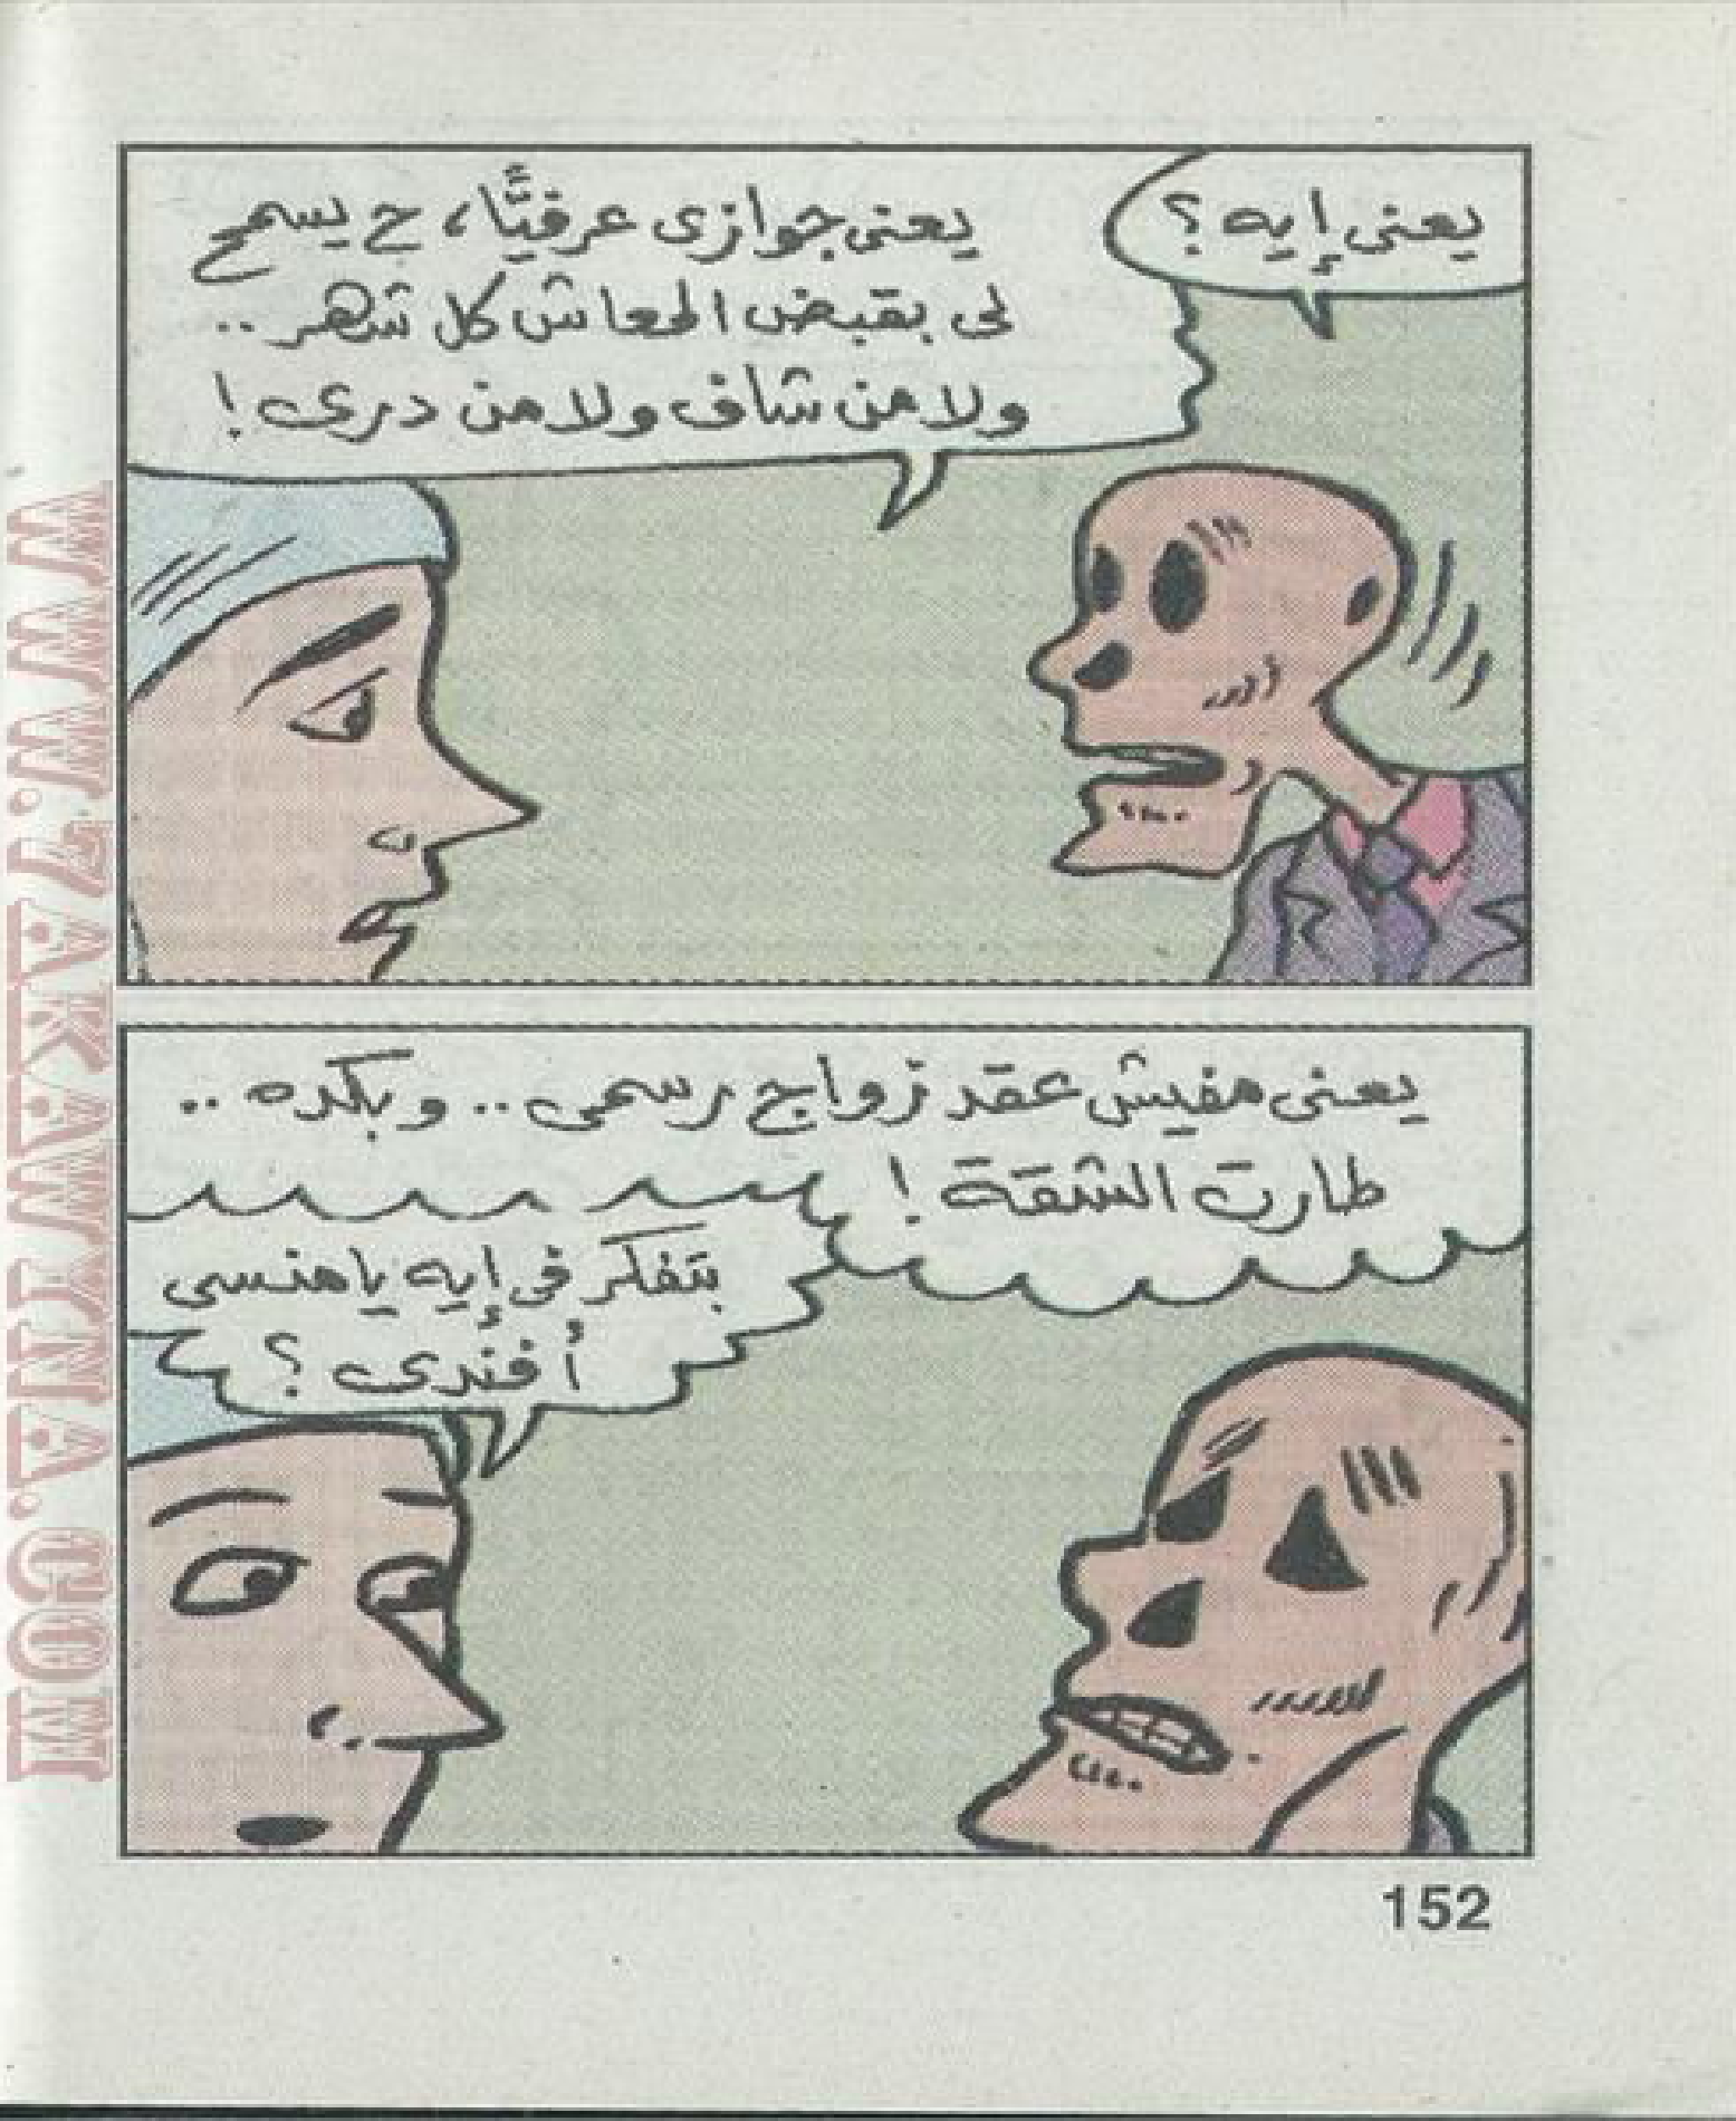 يعنى إيه ؟
يعنى جوازى عرفيًّا، ح يسمح
لى بقبض المعاش كل شهر ..
ولا من شاف ولا من درى !
يعنى مفيش عقد زواج رسمى .. وبكده ..
طارت الشقة !
بتفكر فى إيه يا منسى
أفندى ؟
152
WWW.7AKAWINA.COM